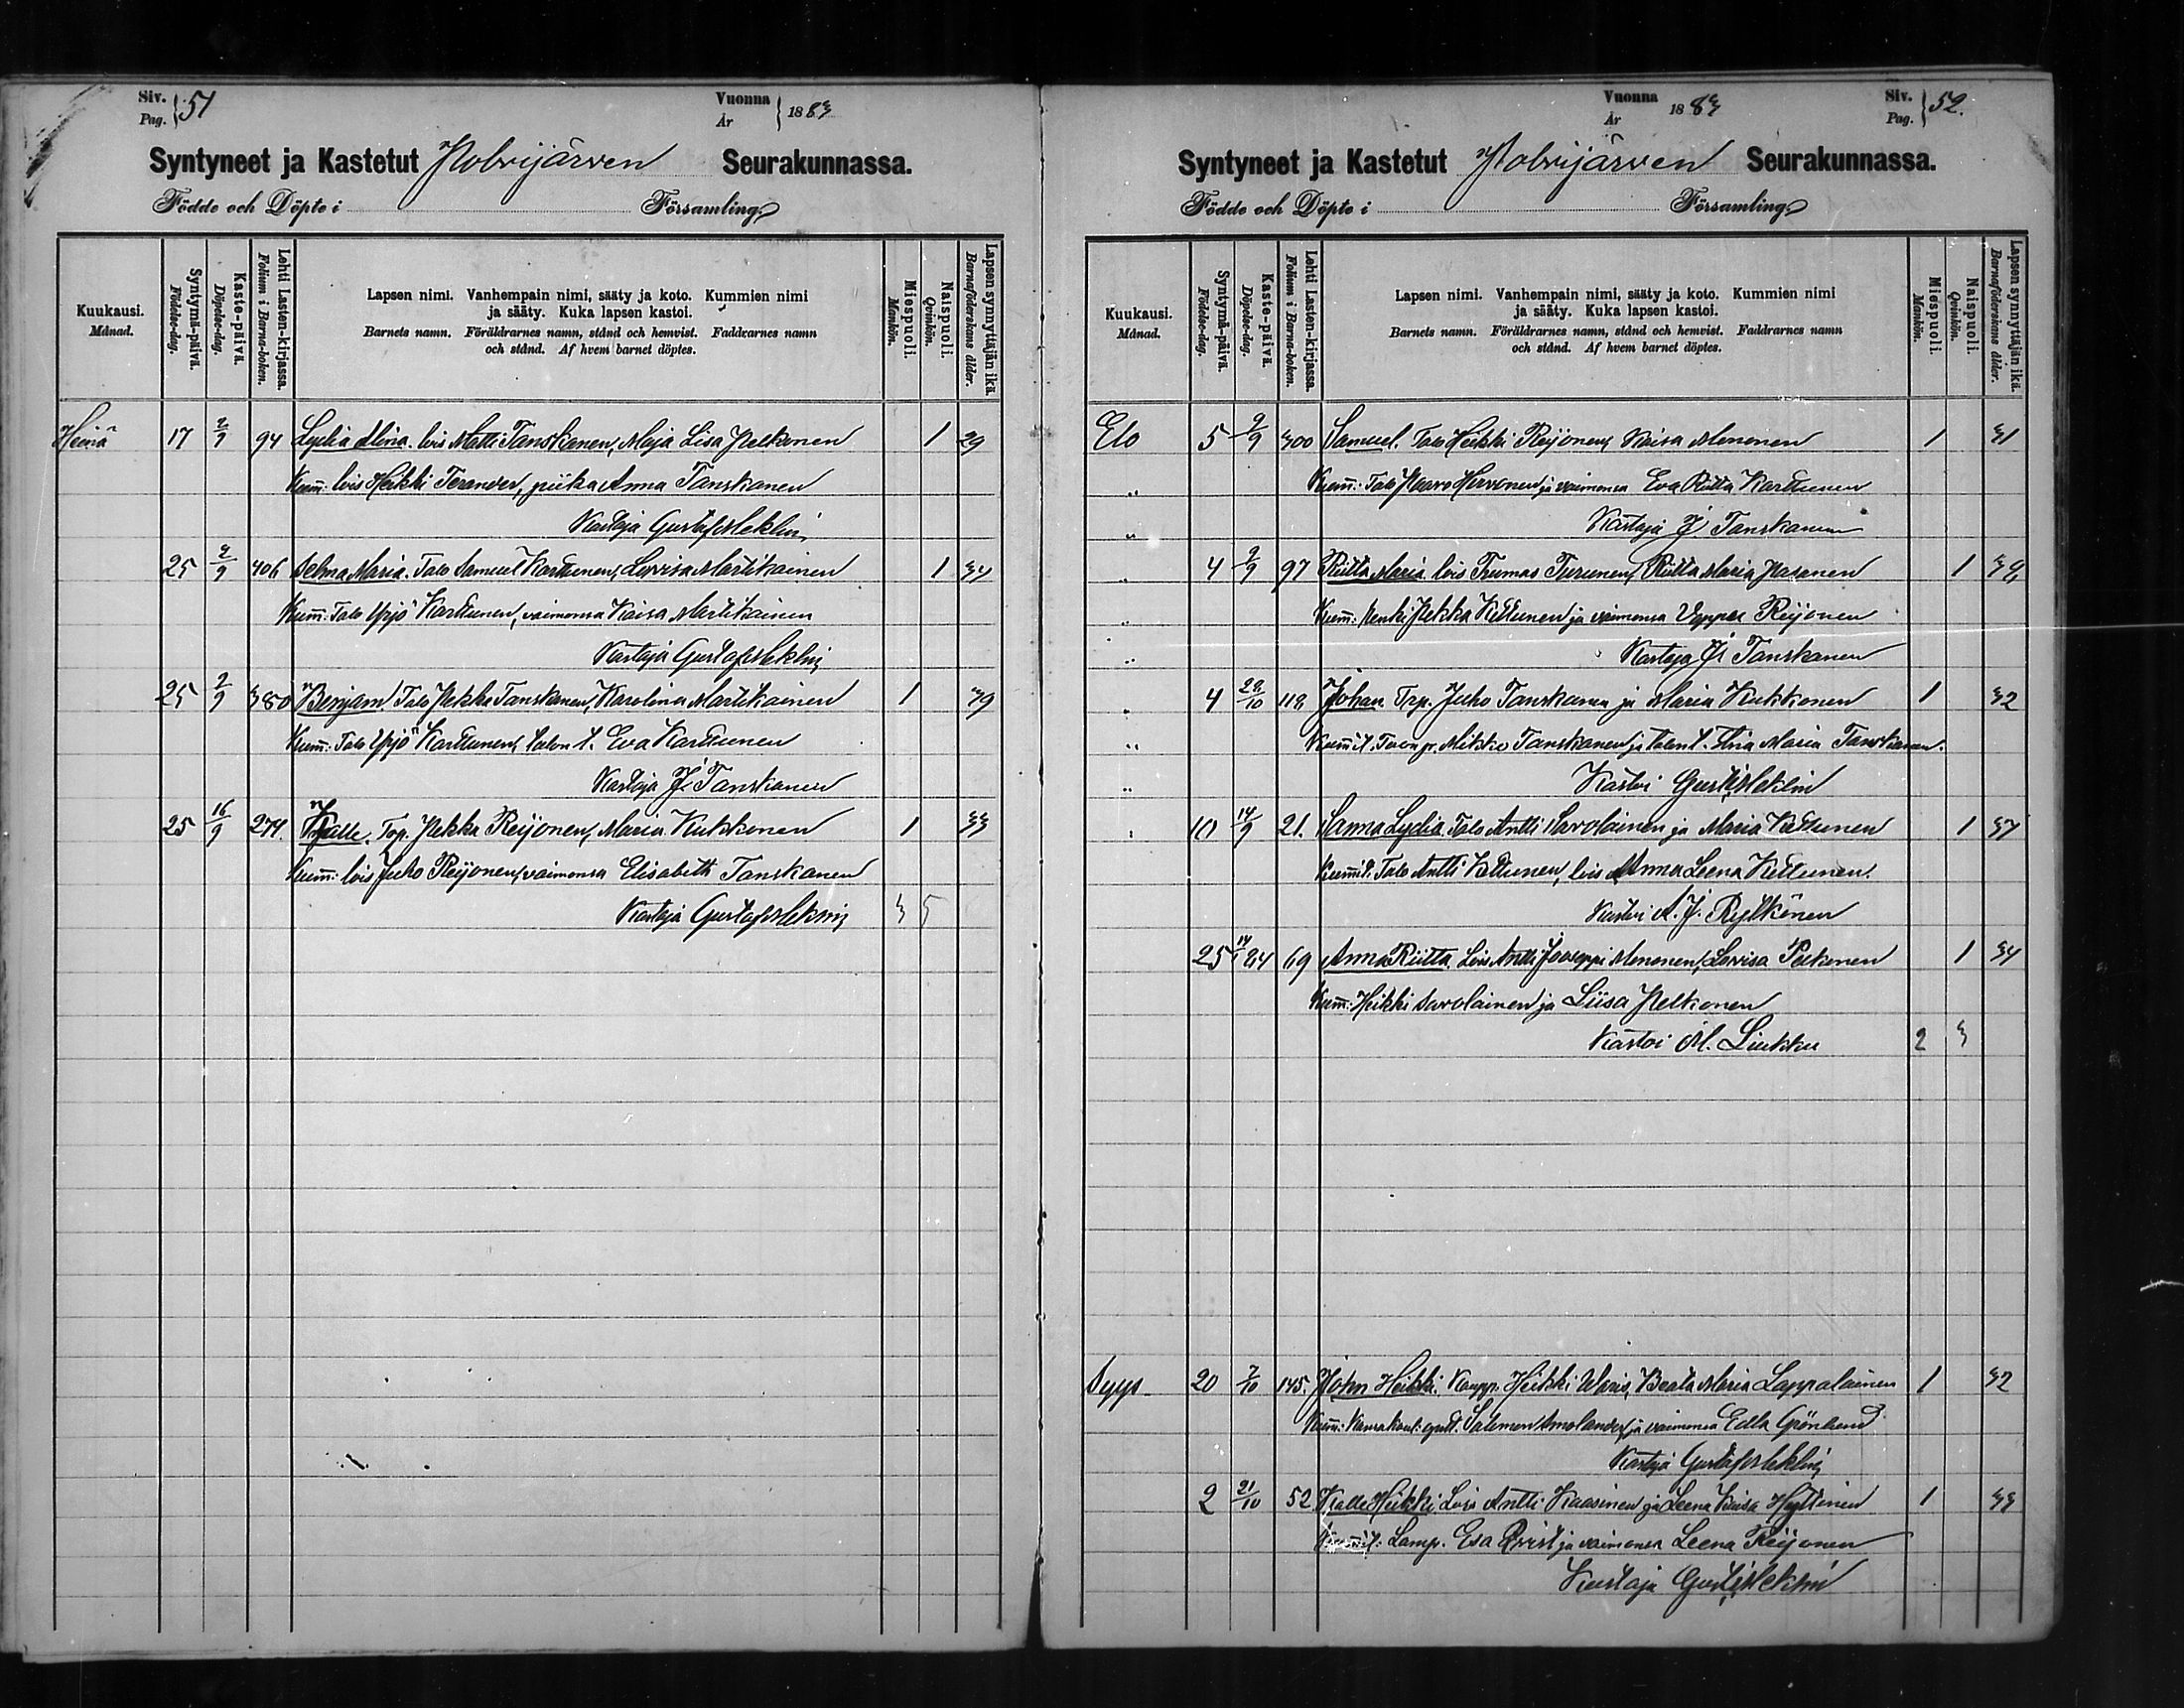 Siv. Pag. } 51
Vuonna År } 1883
Syntyneet ja Kastetut Polvijärven Seurakunnassa.
Födde och Döpte i Församling.
Kuukausi. Månad.
Syntymä-päivä. Födelse-dag.
Kaste-päivä. Döpelse-dag.
Lehti Lasten-kirjassa. Folium i Barna-boken.
Lapsen nimi. Vanhempain nimi, sääty ja koto. Kummien nimi
ja sääty. Kuka lapsen kastoi.
Barnets namn. Föräldrarnes namn, stånd och hemvist. Faddrarnes namn
och stånd. Af hvem barnet döptes.
Miespuoli. Mankön.
Naispuoli. Qvinkön.
Lapsen synnyttäjän ikä. Barnaföderskans ålder.
Heinä 17 2/9 94 Lydia Alina. lois Matti Tanskanen, Maja Lisa Pelkonen 1 29
Kumm: lois Heikki Terander, piika Anna Tanskanen
Kastaja Gustaf Meklin
25 2/9 406 Selma Maria. Talo Samuel Karttunen, Lovisa Martikainen 1 34
Kumm: Talo Yrjö Karttunen, vaimonsa Kaisa Martikainen
Kastaja Gustaf Meklin
25 2/9 380 Benjam. Talo Pekka Tanskanen, Karolina Martikainen 1 39
Kumm: Talo Yrjö Karttunen, talon t. Eva Karttunen
Kastaja J. Tanskanen
25 16/9 274. Kalle. Torp. Pekka Reijonen, Maria Kukkonen 1 33
Kumm: lois Juho Reijonen, vaimonsa Elisabeth Tanskanen
Kastaja Gustaf Meklin 3 5
Vuonna År } 1883
Siv. Pag. } 52.
Syntyneet ja Kastetut Polvijärven Seurakunnassa.
Födde och Döpte i Församling.
Kuukausi. Månad.
Syntymä-päivä. Födelse-dag.
Kaste-päivä. Döpelse-dag.
Lehti Lasten-kirjassa. Folium i Barna-boken.
Lapsen nimi. Vanhempain nimi, sääty ja koto. Kummien nimi
ja sääty. Kuka lapsen kastoi.
Barnets namn. Föräldrarnes namn, stånd och hemvist. Faddrarnes namn
och stånd. Af hvem barnet döptes.
Miespuoli. Mankön.
Naispuoli. Qvinkön.
Lapsen synnyttäjän ikä. Barnaföderskans ålder.
Elo 5 9/9 300 Samuel. Talo Heikki Reijonen, Kaisa Mononen 1 31
" Kumm: Talo Paavo Hirvonen ja vaimonsa Eva Riitta Karttunen
" Kastaja J. Tanskanen
" 4 9/9 97 Riitta Maria. lois Tuomas Turunen, Riitta Maria Pasanen 1
" Kumm: Pekka Kettunen ja vaimonsa Reijonen
" Kastaja J. Tanskanen
" 4 28/10 118 Johan. Trp. Juho Tanskanen ja Maria Kukkonen 1 32
" Kummit. Mikko Tanskanen ja talon t. Maria Tanskanen.
" Kastoi Gust. Meklin
" 10 14/9 21. Sanna Lydia. Talo Antti Savolainen ja Maria Kettunen 1 37
Kummit. Talo Antti Kettunen, lois Anna Leena Kettunen.
Kastoi A. J. Rytkönen
25 69 Anna Riitta. Lois Antti Jooseppi Mononen, Lovisa Pelkonen 1 34
Kumm: Heikki Savolainen ja Liisa Pelkonen
Kastoi M. Liukku 2 3
Syys 20 7/10 145. John Heikki. Kaupp. Heikki Waris, Beata Maria Lappalainen 1 32
Kumm: Salomon Amolander ja vaimonsa Edla Grönlund
Kastaja Gustaf Meklin
2 21/10 52 Kalle Heikki. Lois Antti Kaasinen ja Leena Kaisa Hyttinen 1 33
Kummit: Lamp. Esa Qvist ja vaimonsa Leena Reijonen
Kastaja Gust. Meklin